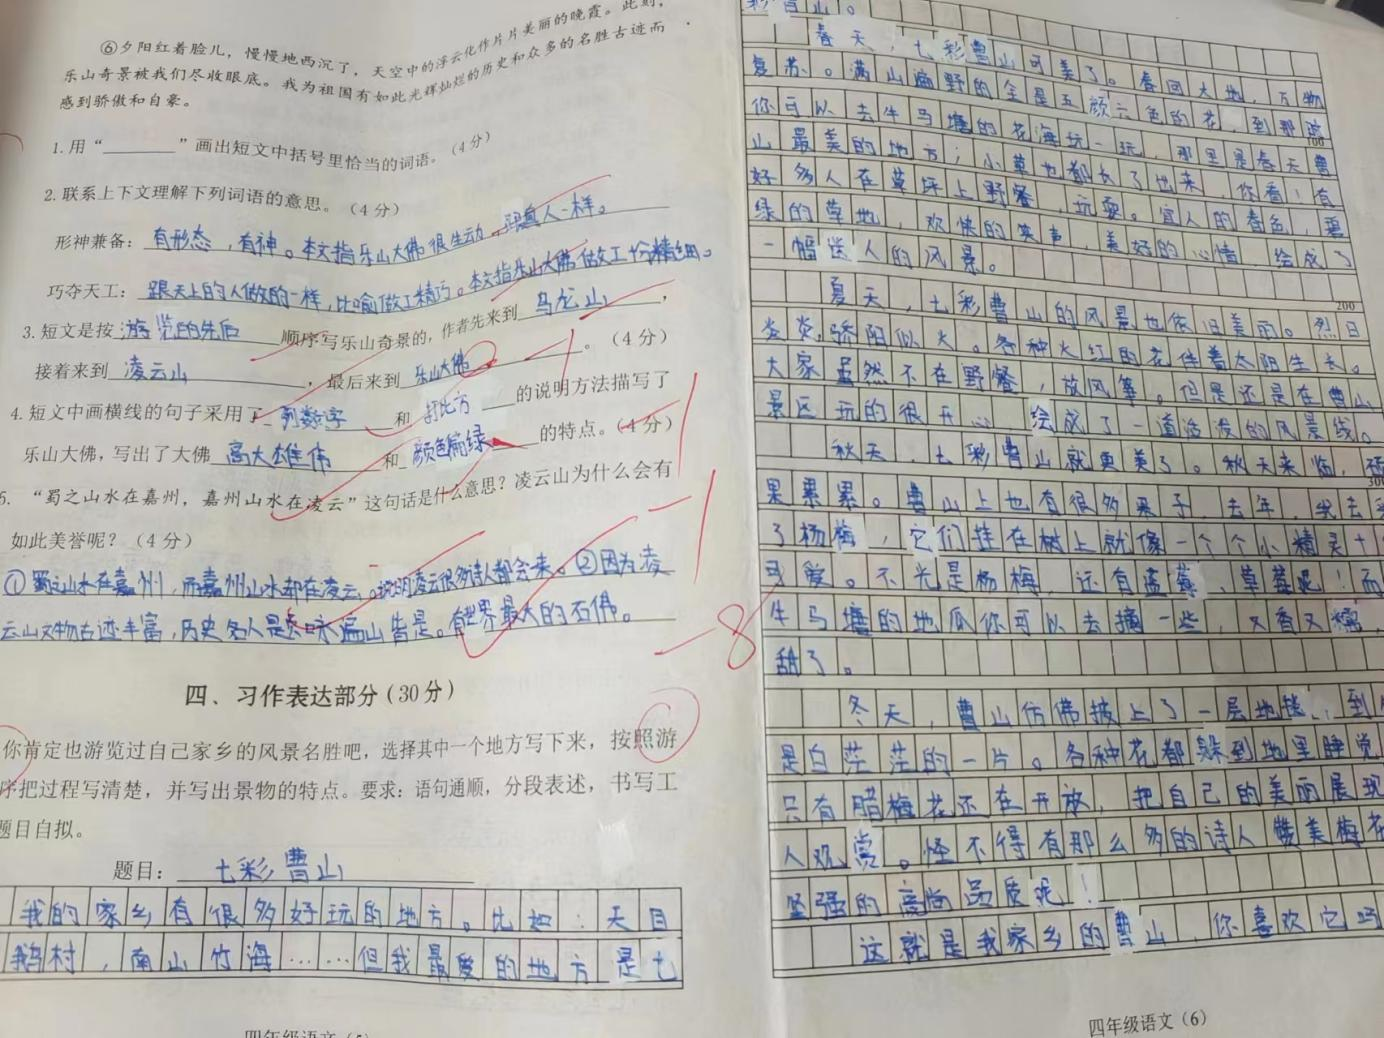 ⑥夕阳红着脸儿，慢慢地西沉了，天空中的浮云化作片片美丽的晚霞。此刻，
乐山奇景被我们尽收眼底。我为祖国有如此光辉灿烂的历史和众多的名胜古迹而
感到骄傲和自豪。
1.用“______”画出短文中括号里恰当的词语。（4分）
2.联系上下文理解下列词语的意思。（4分）
形神兼备：有形态，有神。本文指乐山大佛很生动，跟真人一样。
巧夺天工：跟天上的人做的一样，比喻做工精巧。本文指乐山大佛做工十分精细。
3.短文是按游览的先后顺序写乐山奇景的，作者先来到乌龙山，
接着来到凌云山，最后来到乐山大佛。（4分）
4.短文中画横线的句子采用了列数字和打比方的说明方法描写了
乐山大佛，写出了大佛高大雄伟和颜色偏绿的特点。（4分）
5.“蜀之山水在嘉州，嘉州山水在凌云”这句话是什么意思？凌云山为什么会有
如此美誉呢？（4分）
①蜀之山水在嘉州，而嘉州山水却在凌云。说明凌云很多诗人都会来。②因为凌
云山文物古迹丰富，历史名人遍山皆是。有世界最大的石佛。
-1
-1
-1
-8
四、习作表达部分（30分）
你肯定也游览过自己家乡的风景名胜吧，选择其中一个地方写下来，按照游
序把过程写清楚，并写出景物的特点。要求：语句通顺，分段表述，书写工
题目自拟。
题目：七彩曹山
我的家乡有很多好玩的地方。比如：天目
鹅村，南山竹海……但我最爱的地方是七
四年级语文（5）
彩曹山。
春天，七彩曹山可美了。春回大地，万物
复苏。满山遍野的全是五颜六色的花，到那
100
你可以去牛马塘的花海玩一玩，那里是春天曹
山最美的地方；小草也都长了出来，你看！有
好多人在草坪上野餐，玩耍。宜人的春色，
绿的草地，欢快的笑声，美好的心情，绘成了
一幅迷人的风景。
200
夏天，七彩曹山的风景也依旧美丽。烈日
炎炎，骄阳似火。各种火红的花伴着太阳生长。
大家虽然不在野餐，放风筝。但是还是在曹山
景区玩的很开心，绘成了一道活泼的风景线。
秋天，七彩曹山就更美了。秋天来临，硕
300
果累累。曹山上也有很多果子，去年，我去
了杨梅，它们挂在树上就像一个个小精灵十
可爱。不光是杨梅，还有蓝莓，草莓呢！而
牛马塘的地瓜你可以去摘一些，又香又糯，
甜了。
冬天，曹山仿佛披上了一层地毯，到
是白茫茫的一片。各种花都躲到地里睡觉
只有腊梅花还在开放，把自己的美丽展现
人观赏。怪不得有那么多的诗人赞美梅花
坚强的高尚品质呢！
这就是我家乡的曹山，你喜欢它吗
四年级语文（6）